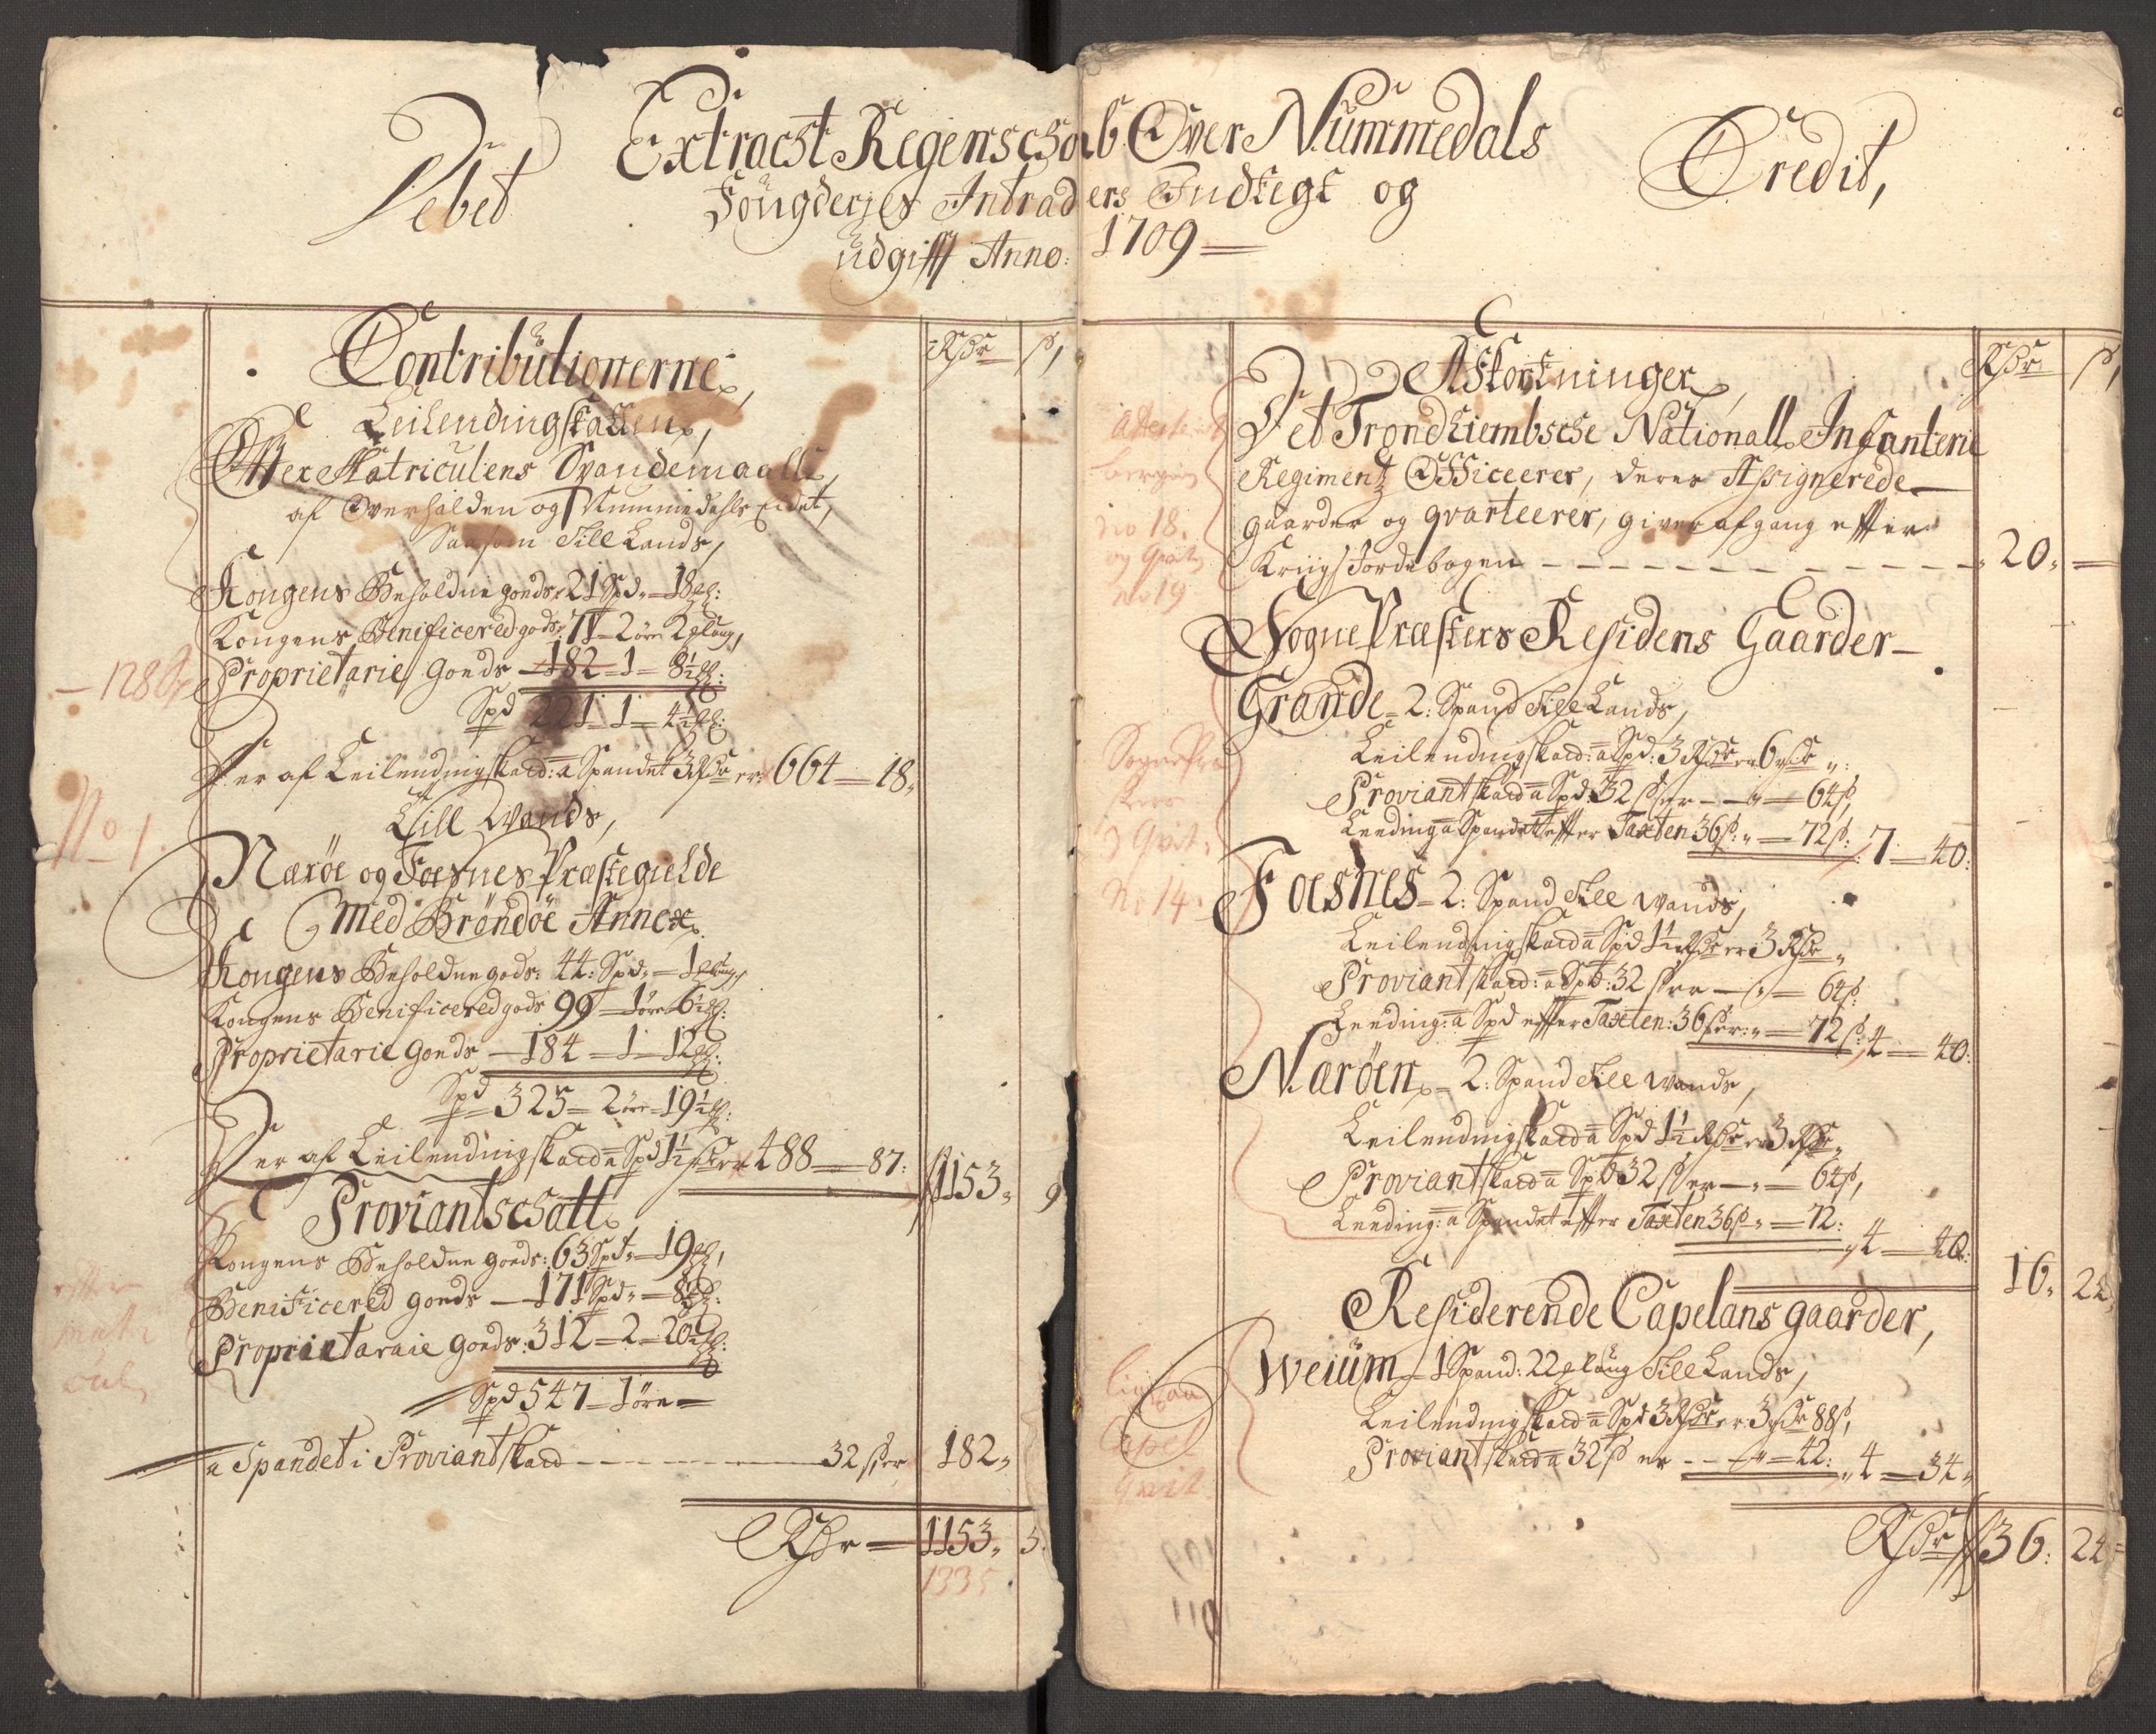 Debet
Extract Regenschab Over Nummedals
Fougderjes Intraders Indtegt og
udgifft Anno: 1709
Credit,
Contributionerne,
Rdr ß,
Leilendingskatten,
Effter Matriculens Spandemaall,
af Overhalden og Nummedahls eidet,
Saasom Till Lands,
Kongens Beholdne goeds 21 Spd - 18
Kongens Benificered gods: 17 - 2 öre 2
Proprietarie Goeds - 182 - 1 - 8½
Spd 221 - 1 - 4½
Der af Leilendingskad: a Spandet 3 Rdr er: 664 - 18
Till Wands,
Næröe og Foesnes Præstegielde
Med Bröndöe Annex
Kongens Beholdne gods: 44: Spd - 1
Kongens Benificered gods 99 - 1 öre 6½
Proprietarie Goeds - 184 - 1 - 12
Spd 325 - 2 öre - 19½
Der af Leilendingskad a Spd 1½ Rdr er 488 - 87: 1153 9
Proviantschatt
Kongens Beholdne goeds: 63 Spd - 19
Benificered goeds - 171 Spd - 8½
Proprietaraie goeds: 312 - 2 - 20½
Spd 547 - 1 öre -
a Spandet i Proviantskad - 32 ß er 182
Rdr - 1153 5
1335
No 1.
Afkortninger
Rdr ß,
Det Trondhiembsche Nationall Infanterie
Regimentz Officeerer, deres Assignerede
gaarder og qvarteerer, giver afgang effter
Kriigs Jordebogen - 20
no 18.
no 19
Sogne Præsters Residens Gaarder
Grande - 2: Spand Till Lands,
Leilendingskad: a Spd: 3 Rdr er 6 Rdr
Proviantskad a Spd 32 ß er - 64 ß,
Leeding a Spandet effter Taxten 36 ß: - 72 ß: 7 - 40:
No 14
Foesnes - 2: Spand Till Wands,
Leilendingskad a Spd 1½ Rdr er 3 Rdr
Proviantskad: a Spd: 32 ß er - 64 ß:
Leeding: a Spd effter Taxten: 36 ß er: - 72 ß: 4 - 40:
Næröen - 2: Spand Till Wands,
Leilendingskad a Spd 1½ Rdr er 3 Rdr
Proviantskad a Spd 32 ß er - 64 ß,
Leeding: a Spandet effter Taxten 36 ß - 72: 4 - 40:
16 24
Residerende Capelans gaarder,
Weium - 1 Spand: 22 Till Lands,
Leilendingskad a Spd 3 Rdr er 3 Rdr 88 ß,
Proviantskad a 32 ß er - 42: 4 - 34
Rdr 36: 24